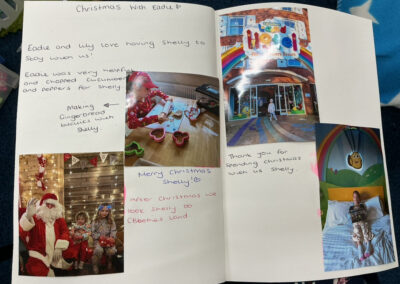 Christmas With Eadie
Eadie and Lily love having Shelly to
stay with us!
Eadie was very helpful
and chopped cucumbers
and peppers for Shelly.
Making
Gingerbread
biscuits with
Shelly
Merry Christmas
Shelly!
After Christmas we
took Shelly to
CBeebies Land
Land
Hotel
Thank you for
spending Christmas
with us Shelly.